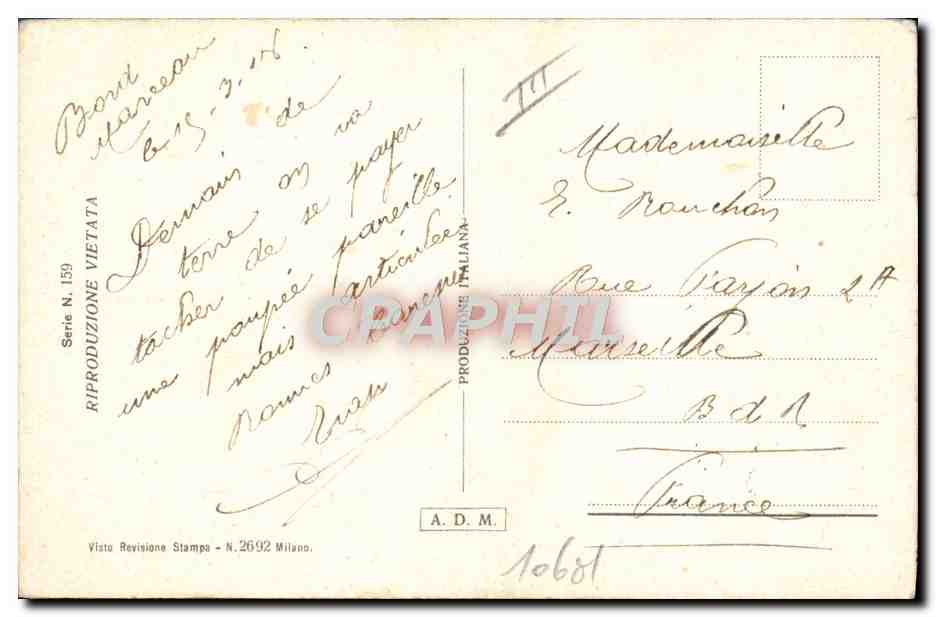 Bord
Marceau
le 15.3.18.
Demain de
terre on va
tacher de se payer
une poupée pareille
mais articulée
Bonnes
III
Mademaiselle
E. Rouchon
Rue Farjon 2A
Marseille
B d R
France
Serie N. 159
RIPRODUZIONE VIETATA
PRODUZIONE ITALIANA
CPAPHIL
A. D. M.
Visto Revisione Stampa - N. 2692 Milano.
10681